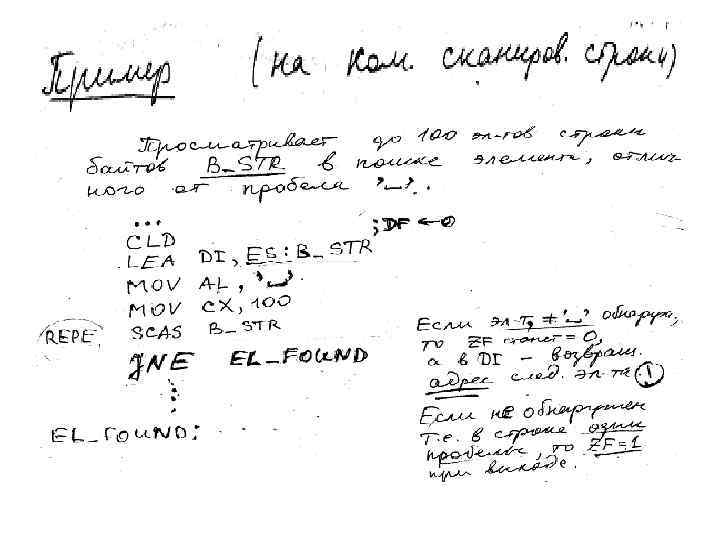 Пример (на ком. сканиров. строки)
Просматривает до 100 эл-тов строки
байтов B_STR в поиске элемента, отлич
ного от пробела '␣'.
...
CLD ;DF ← 0
LEA DI, ES:B_STR
MOV AL, '␣'
MOV CX, 100
REPE SCAS B_STR
JNE EL_FOUND
EL_FOUND:
Если эл-т, ≠ '␣' обнаруж,
то ZF станет = 0,
а в DI – возвращ.
адрес след. эл-та (1)
Если не обнаружен
т.е. в строке одни
пробелы, то ZF=1
при выходе.